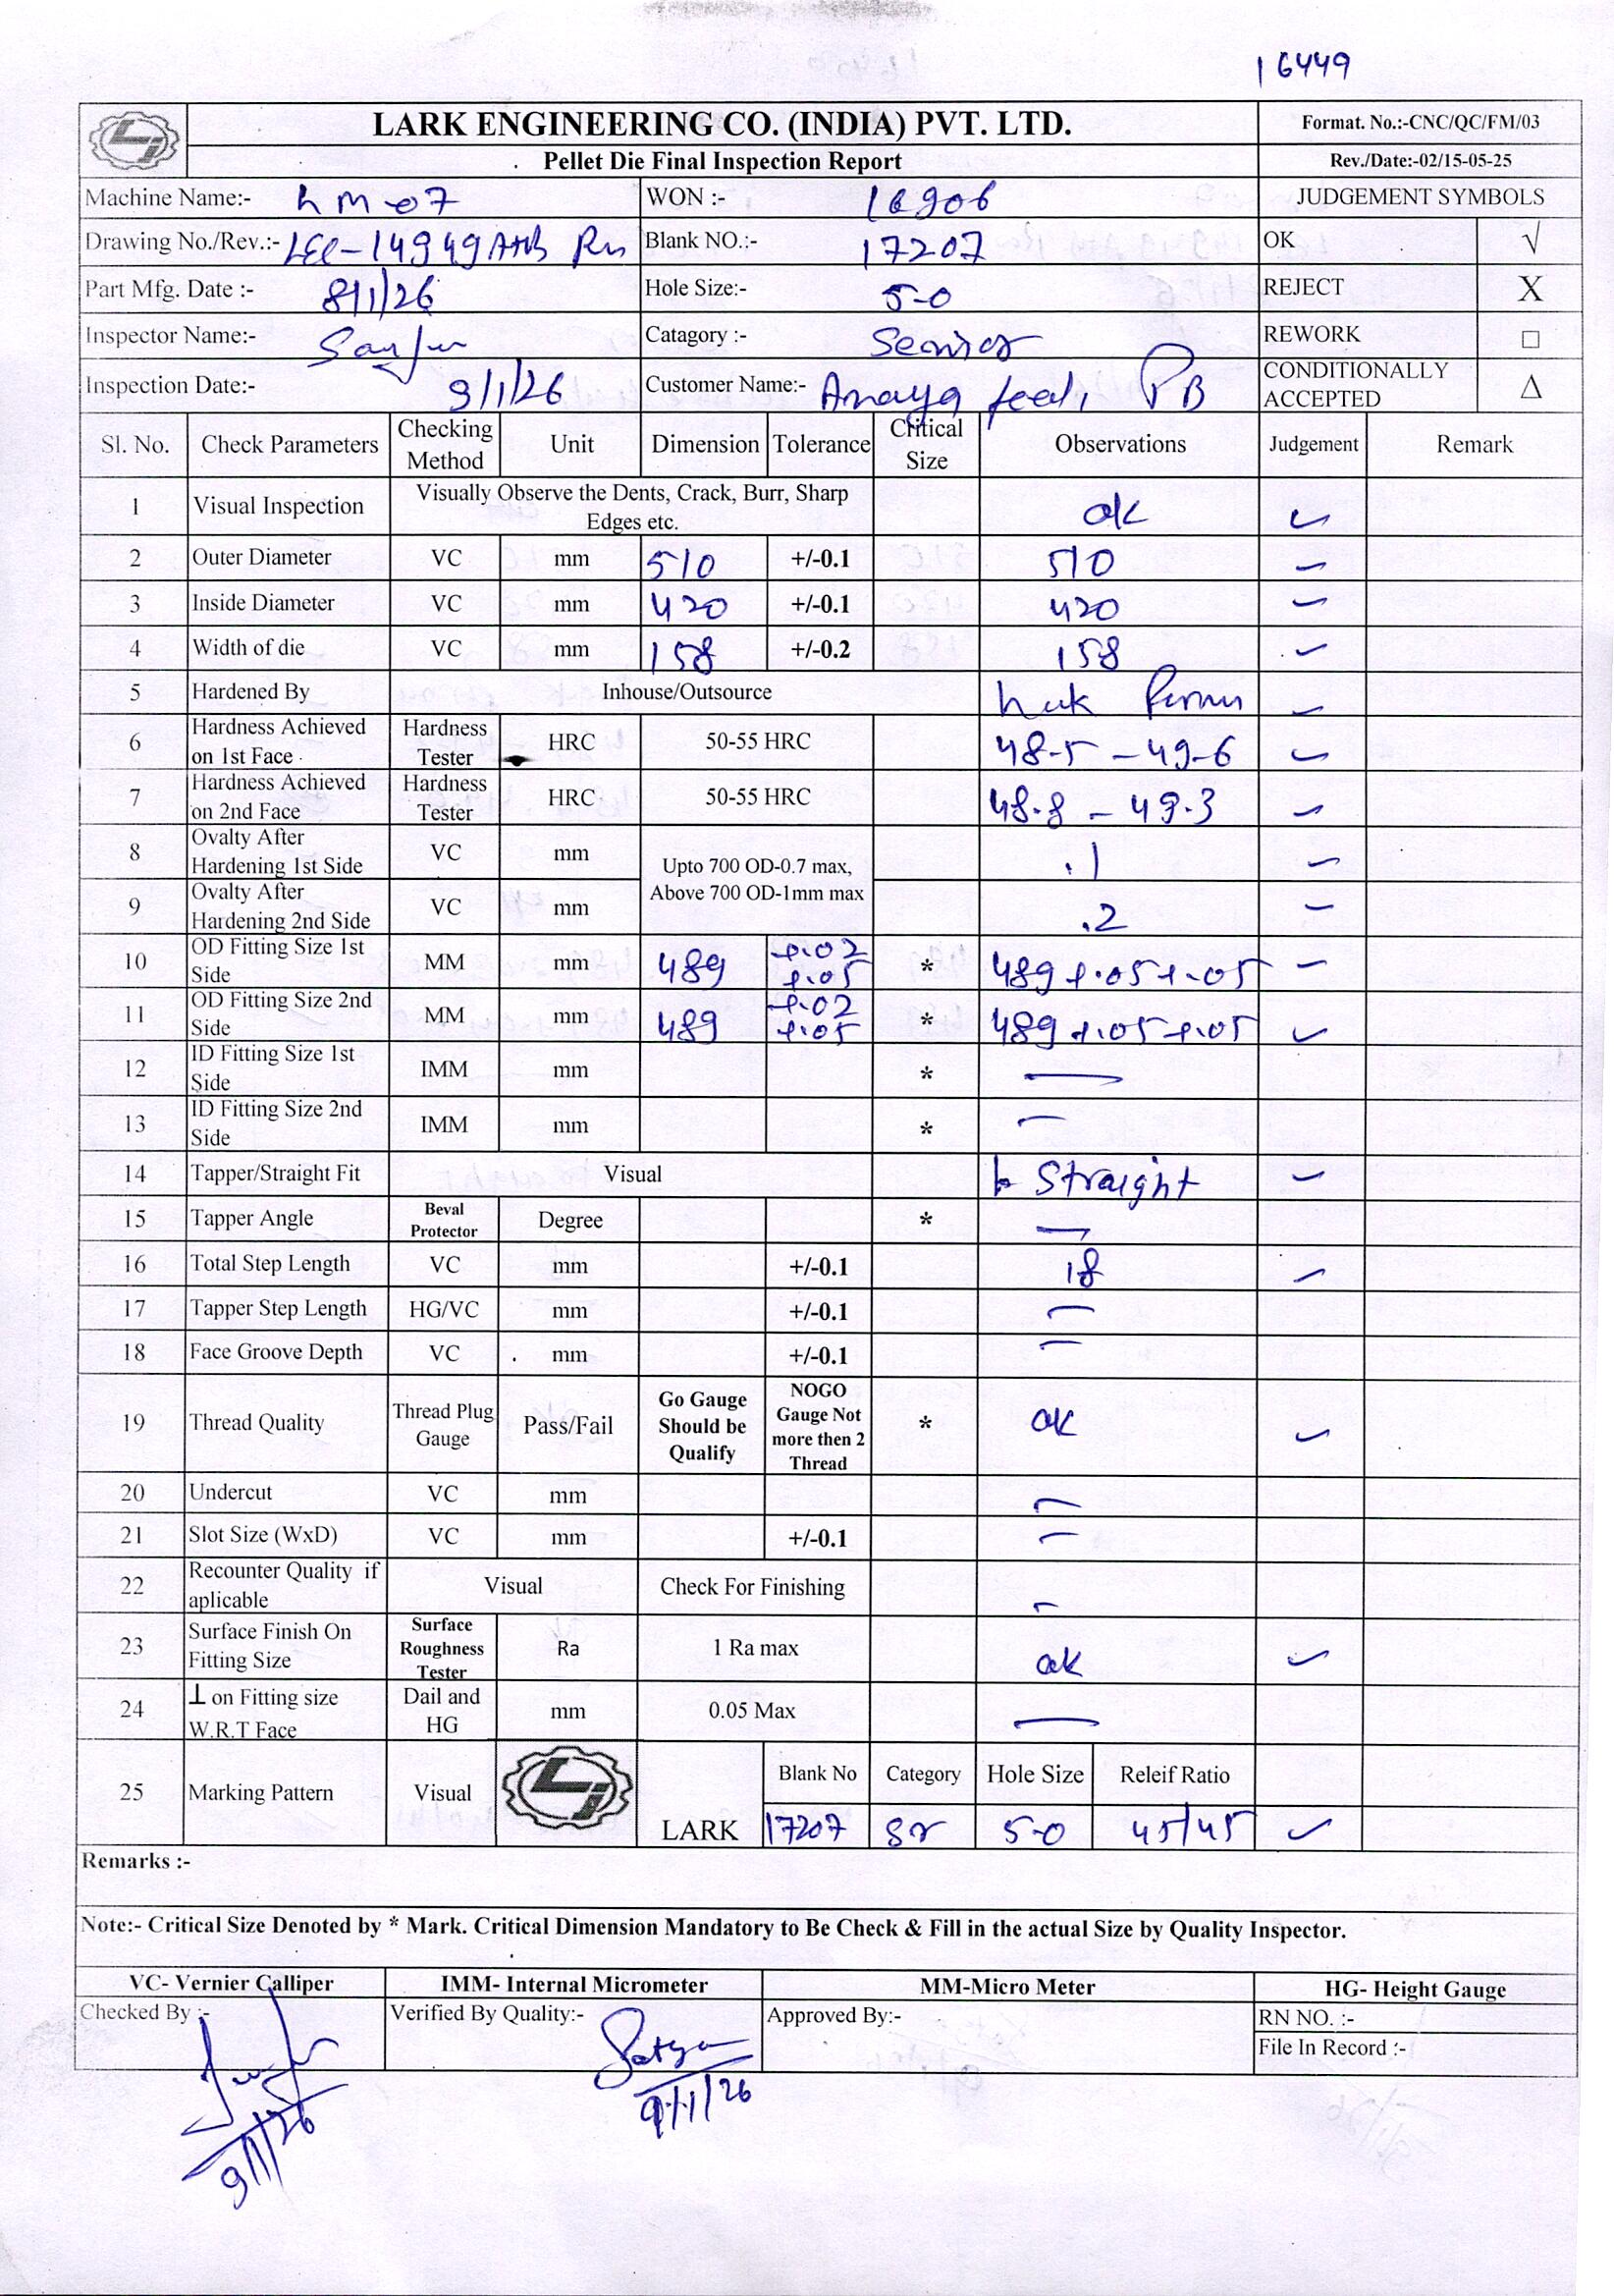 16449
LARK ENGINEERING CO. (INDIA) PVT. LTD.
Format. No.:-CNC/QC/FM/03
Pellet Die Final Inspection Report
Rev./Date:-02/15-05-25
Machine Name:- hm-07 WON :- 16906 JUDGEMENT SYMBOLS
Drawing No./Rev.:- LEC-14949 Blank NO.:- 17207 OK √
Part Mfg. Date :- 8/1/26 Hole Size:- 5-0 REJECT X
Inspector Name:- Catagory :- Senior REWORK □
Inspection Date:- 9/1/26 Customer Name:- Anaya feed, PB CONDITIONALLY ACCEPTED Δ
Sl. No. Check Parameters Checking Method Unit Dimension Tolerance Critical Size Observations Judgement Remark
1 Visual Inspection Visually Observe the Dents, Crack, Burr, Sharp Edges etc. ok ✓
2 Outer Diameter VC mm 510 +/-0.1 510 ✓
3 Inside Diameter VC mm 420 +/-0.1 420 ✓
4 Width of die VC mm 158 +/-0.2 158 ✓
5 Hardened By Inhouse/Outsource ✓
6 Hardness Achieved on 1st Face Hardness Tester HRC 50-55 HRC 48-5 - 49-6 ✓
7 Hardness Achieved on 2nd Face Hardness Tester HRC 50-55 HRC 48.8 - 49.3 ✓
8 Ovalty After Hardening 1st Side VC mm Upto 700 OD-0.7 max, Above 700 OD-1mm max .1 ✓
9 Ovalty After Hardening 2nd Side VC mm .2 ✓
10 OD Fitting Size 1st Side MM mm 489 +.02 +.05 * 489 +.05 +.05 ✓
11 OD Fitting Size 2nd Side MM mm 489 +.02 +.05 * 489 +.05 +.05 ✓
12 ID Fitting Size 1st Side IMM mm * —
13 ID Fitting Size 2nd Side IMM mm * —
14 Tapper/Straight Fit Visual Straight ✓
15 Tapper Angle Beval Protector Degree * —
16 Total Step Length VC mm +/-0.1 18 ✓
17 Tapper Step Length HG/VC mm +/-0.1 —
18 Face Groove Depth VC mm +/-0.1 —
19 Thread Quality Thread Plug Gauge Pass/Fail Go Gauge Should be Qualify NOGO Gauge Not more then 2 Thread * ok ✓
20 Undercut VC mm —
21 Slot Size (WxD) VC mm +/-0.1 —
22 Recounter Quality if aplicable Visual Check For Finishing —
23 Surface Finish On Fitting Size Surface Roughness Tester Ra 1 Ra max ok ✓
24 ⊥ on Fitting size W.R.T Face Dail and HG mm 0.05 Max —
25 Marking Pattern Visual LARK Blank No Category Hole Size Releif Ratio
17207 Sr 5-0 45/45 ✓
Remarks :-
Note:- Critical Size Denoted by * Mark. Critical Dimension Mandatory to Be Check & Fill in the actual Size by Quality Inspector.
VC- Vernier Calliper IMM- Internal Micrometer MM-Micro Meter HG- Height Gauge
Checked By :- Verified By Quality:- Approved By:- RN NO. :-
File In Record :-
Satya
9/1/26
9/1/26